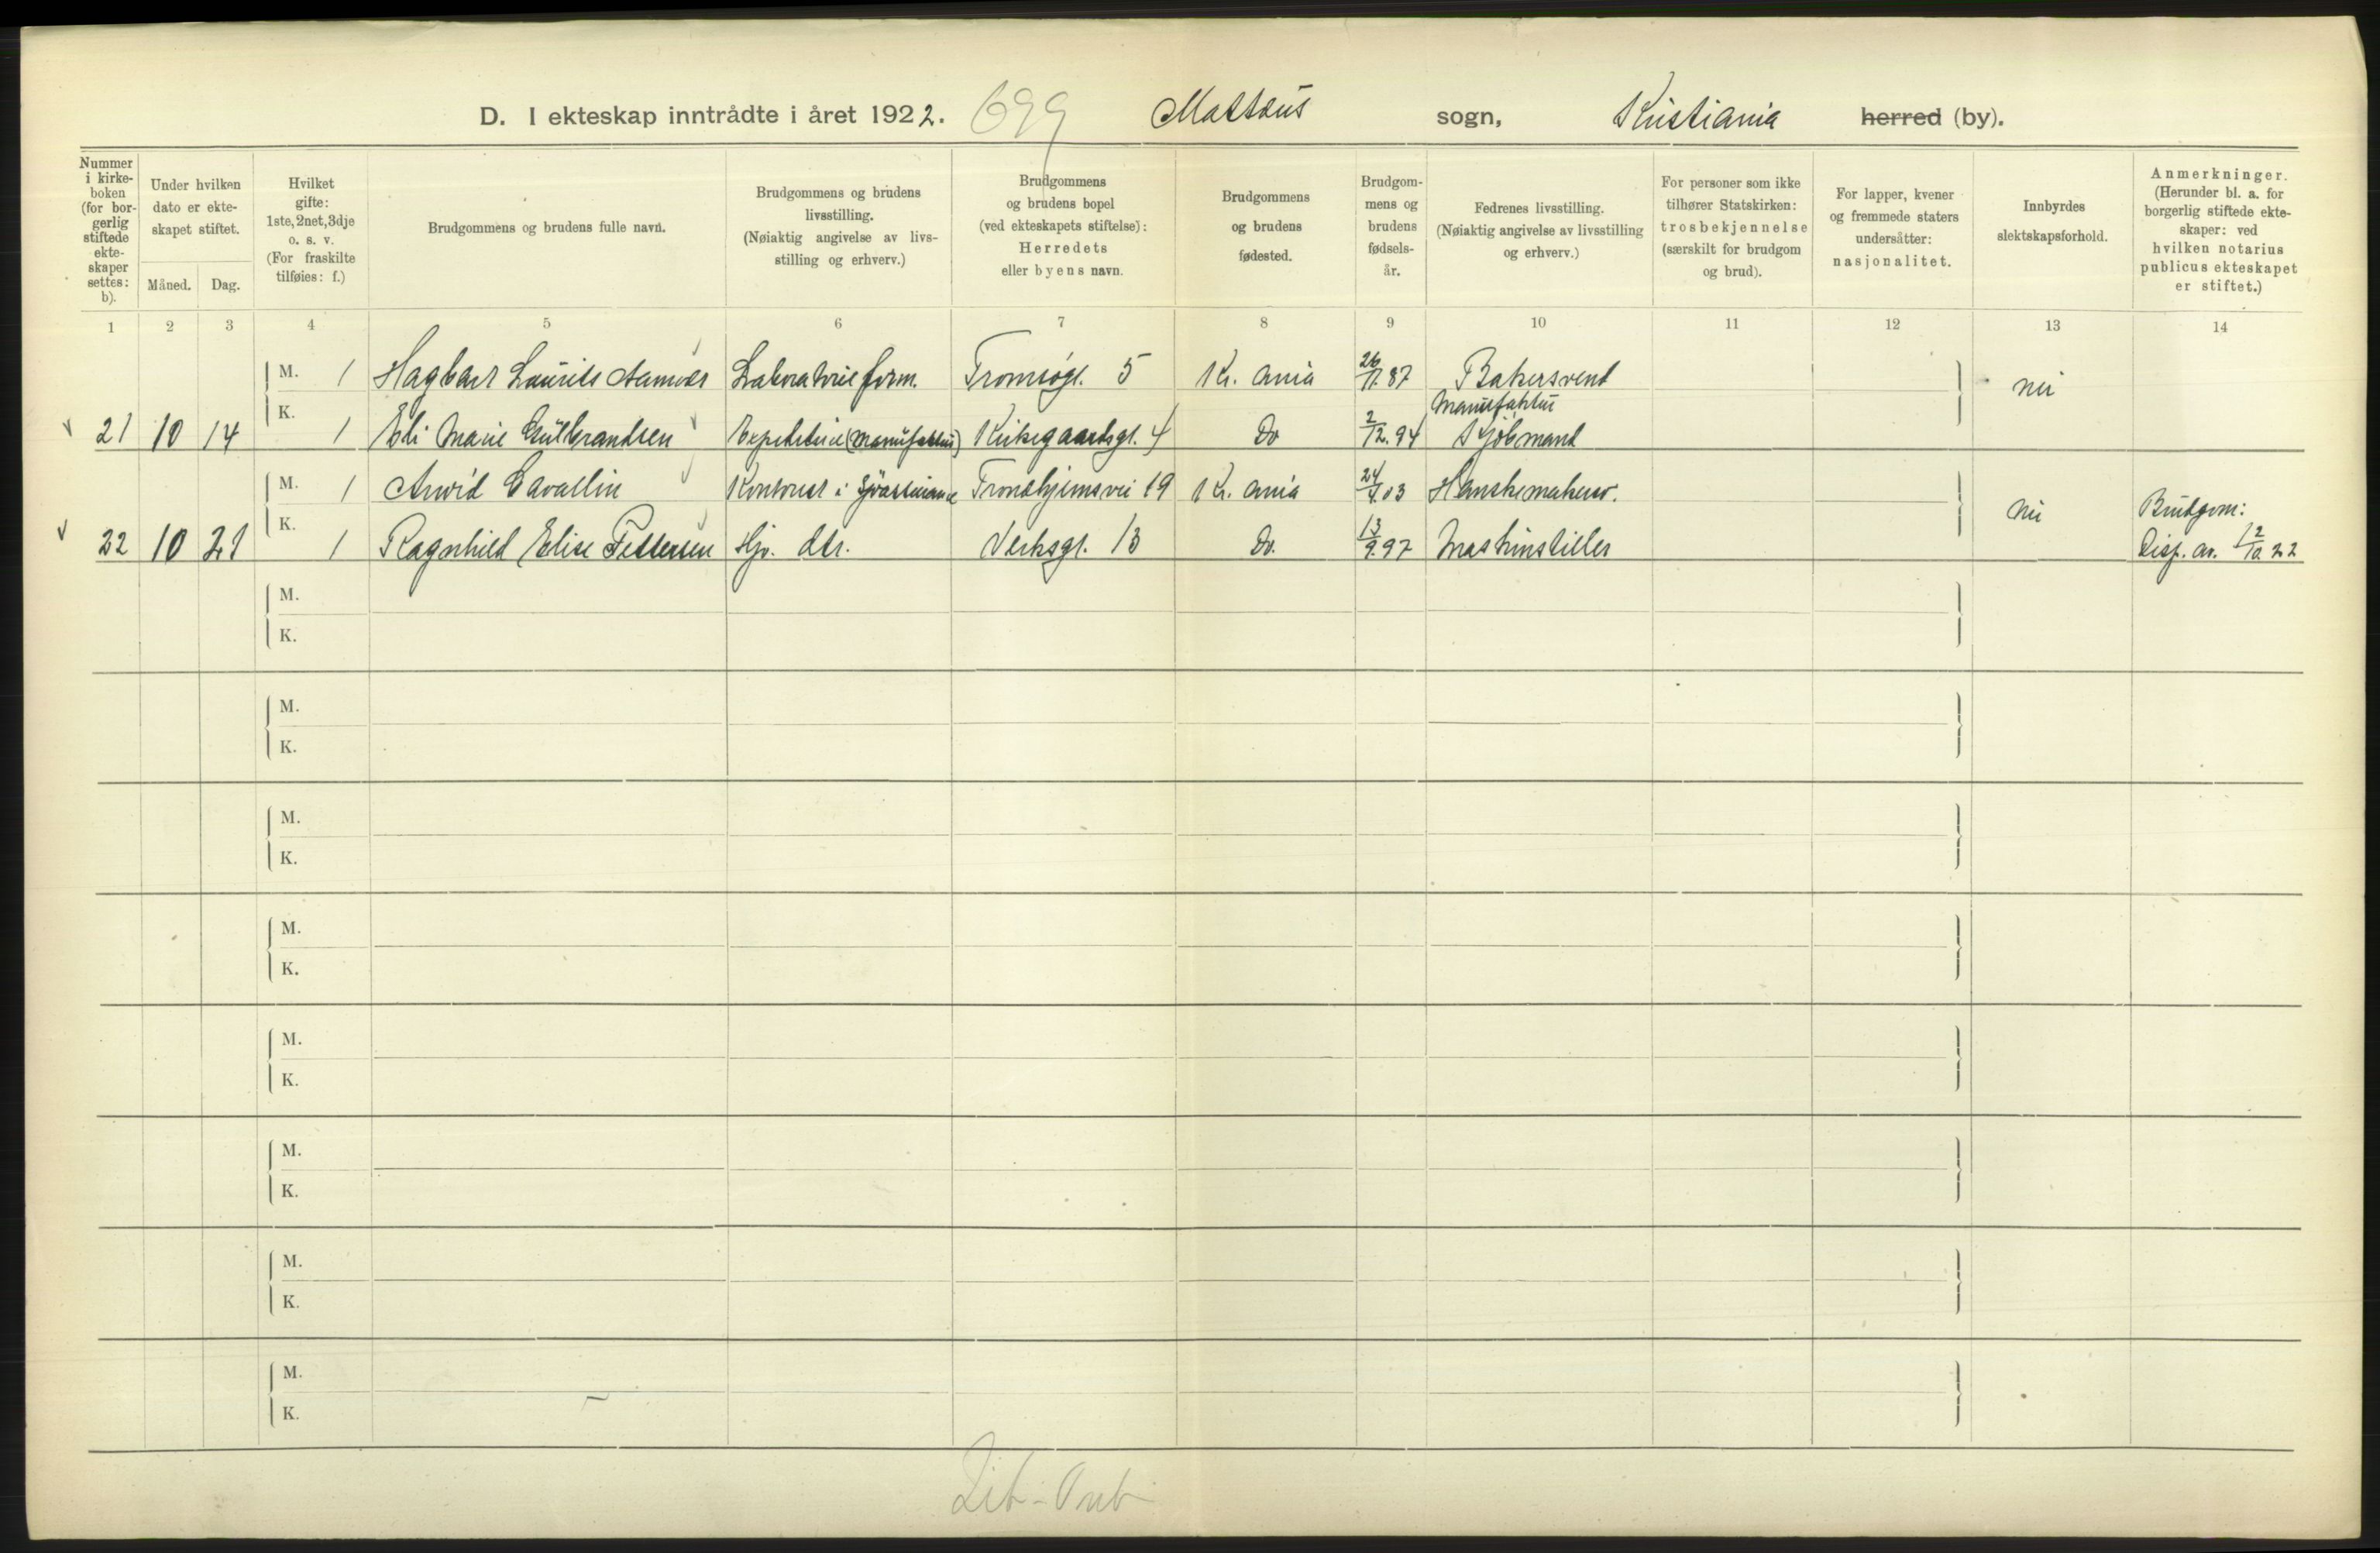 D. I ekteskap inntrådte i året 1922. 699 Mattæus sogn, Kristiania herred (by).
Nummer i kirkeboken (for borgerlig stiftede ekteskaper settes: b).
Under hvilken dato er ekteskapet stiftet.
Måned. Dag.
Hvilket gifte: 1ste, 2net, 3dje o. s. v. (For fraskilte tilføies: f.)
Brudgommens og brudens fulle navn.
Brudgommens og brudens livsstilling. (Nøiaktig angivelse av livsstilling og erhverv.)
Brudgommens og brudens bopel (ved ekteskapets stiftelse): Herredets eller byens navn.
Brudgommens og brudens fødested.
Brudgommens og brudens fødselsår.
Fedrenes livsstilling. (Nøiaktig angivelse av livsstilling og erhverv.)
For personer som ikke tilhører Statskirken: trosbekjennelse (særskilt for brudgom og brud).
For lapper, kvener og fremmede staters undersåtter: nasjonalitet.
Innbyrdes slektskapsforhold.
Anmerkninger. (Herunder bl. a. for borgerlig stiftede ekteskaper: ved hvilken notarius publicus ekteskapet er stiftet.)
1 2 3 4 5 6 7 8 9 10 11 12 13 14
M. 1 Hagbart Laurits Aamodt Laboratorieform. Tromsøgt. 5 Kr.ania 26/11.87 Bakersvend nei
Manufaktur
21 10 14 K. 1 Eli Marie Gulbrandsen Expeditrice (manufaktur) Kirkegaardsgt. 4 Do 2/12.94 Kjøbmand
M. 1 Arvid Cavallin Kontorist i Sjøassurance Trondhjemsvei 19 Kr.ania 24/4.03 Hanskemakersv. nei Brudgom:
22 10 21 K. 1 Ragnhild Elise Pettersen Hjv. dtr. Verksgt. 13 Do. 13/9.97 Maskinstiller Disp. av. 12/10 22
M.
K.
M.
K.
M.
K.
M.
K.
M.
K.
M.
K.
M.
K.
M.
K.